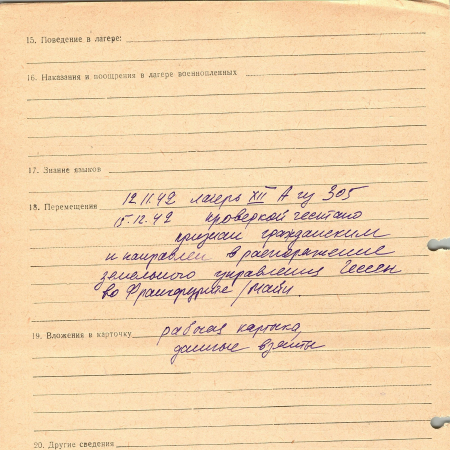 15. Поведение в лагере:
16. Наказания и поощрения в лагере военнопленных
17. Знание языков
18. Перемещения 12.11.42 лагерь XII А из 305
15.12.42 проверкой гестапо
признан гражданским
и направлен в распоряжение
земельного управления Гессен
во Франкфурте/Майн.
19. Вложения в карточку рабочая карточка,
данные взяты
20. Другие сведения